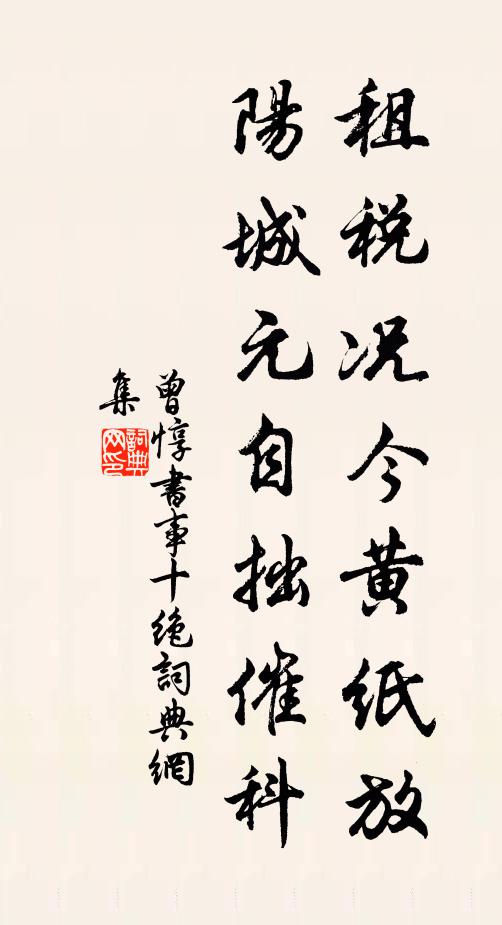 租税况今黄纸放
陽城元自拙催科
曾惇書事十絶詞典網
集
詞典
网印